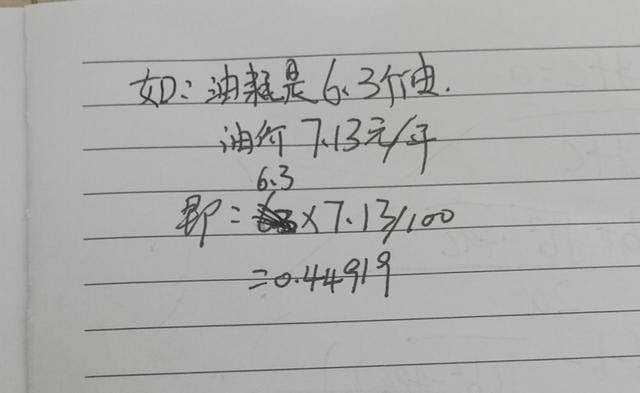 如:油耗是6.3个油.
油价7.13元/升
6.3
即:×7.13/100
=0.44919